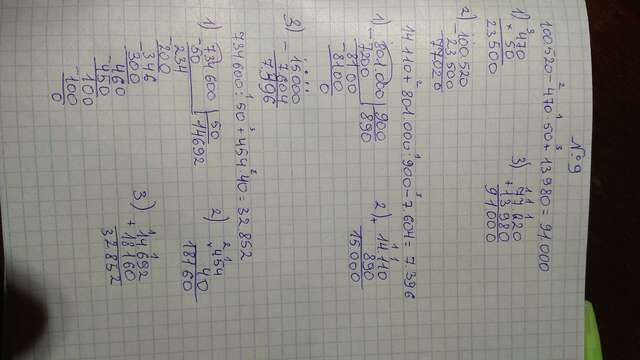 № 9
100520 - 470 · 50 + 13 980 = 91 000
1) × 470
50
23 500
2) - 100 520
23 500
77020
3) 77 020
+ 13 980
91 000
14 110 + 801 000 : 900 - 7 604 = 7 396
1) - 801 000 | 900
7200 | 890
- 8100
8100
0
2) + 14 110
890
15 000
3) - 15 000
7 604
7 396
734 600 : 50 + 454 · 40 = 32 852
1) - 734 600 | 50
50 | 14692
- 234
200
- 346
300
- 460
450
- 100
100
0
2) × 454
40
18160
3) + 14 692
18 160
32 852